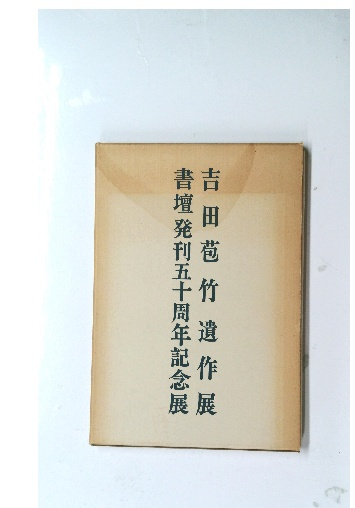 吉田苞竹遺作展
書壇発刊五十周年記念展